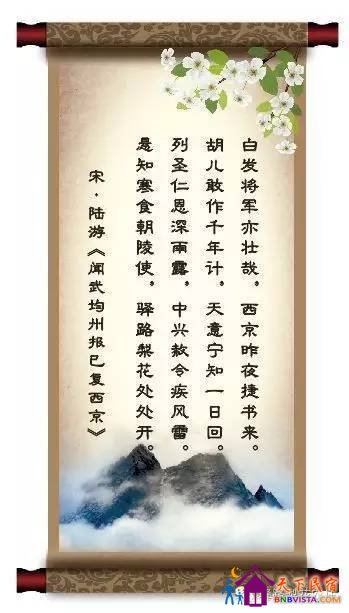 白发将军亦壮哉，西京昨夜捷书来。
胡儿敢作千年计，天意宁知一日回。
列圣仁恩深雨露，中兴赦令疾风雷。
悬知寒食朝陵使，驿路梨花处处开。
宋·陆游《闻武均州报已复西京》
天下民宿
BNBVISTA.COM